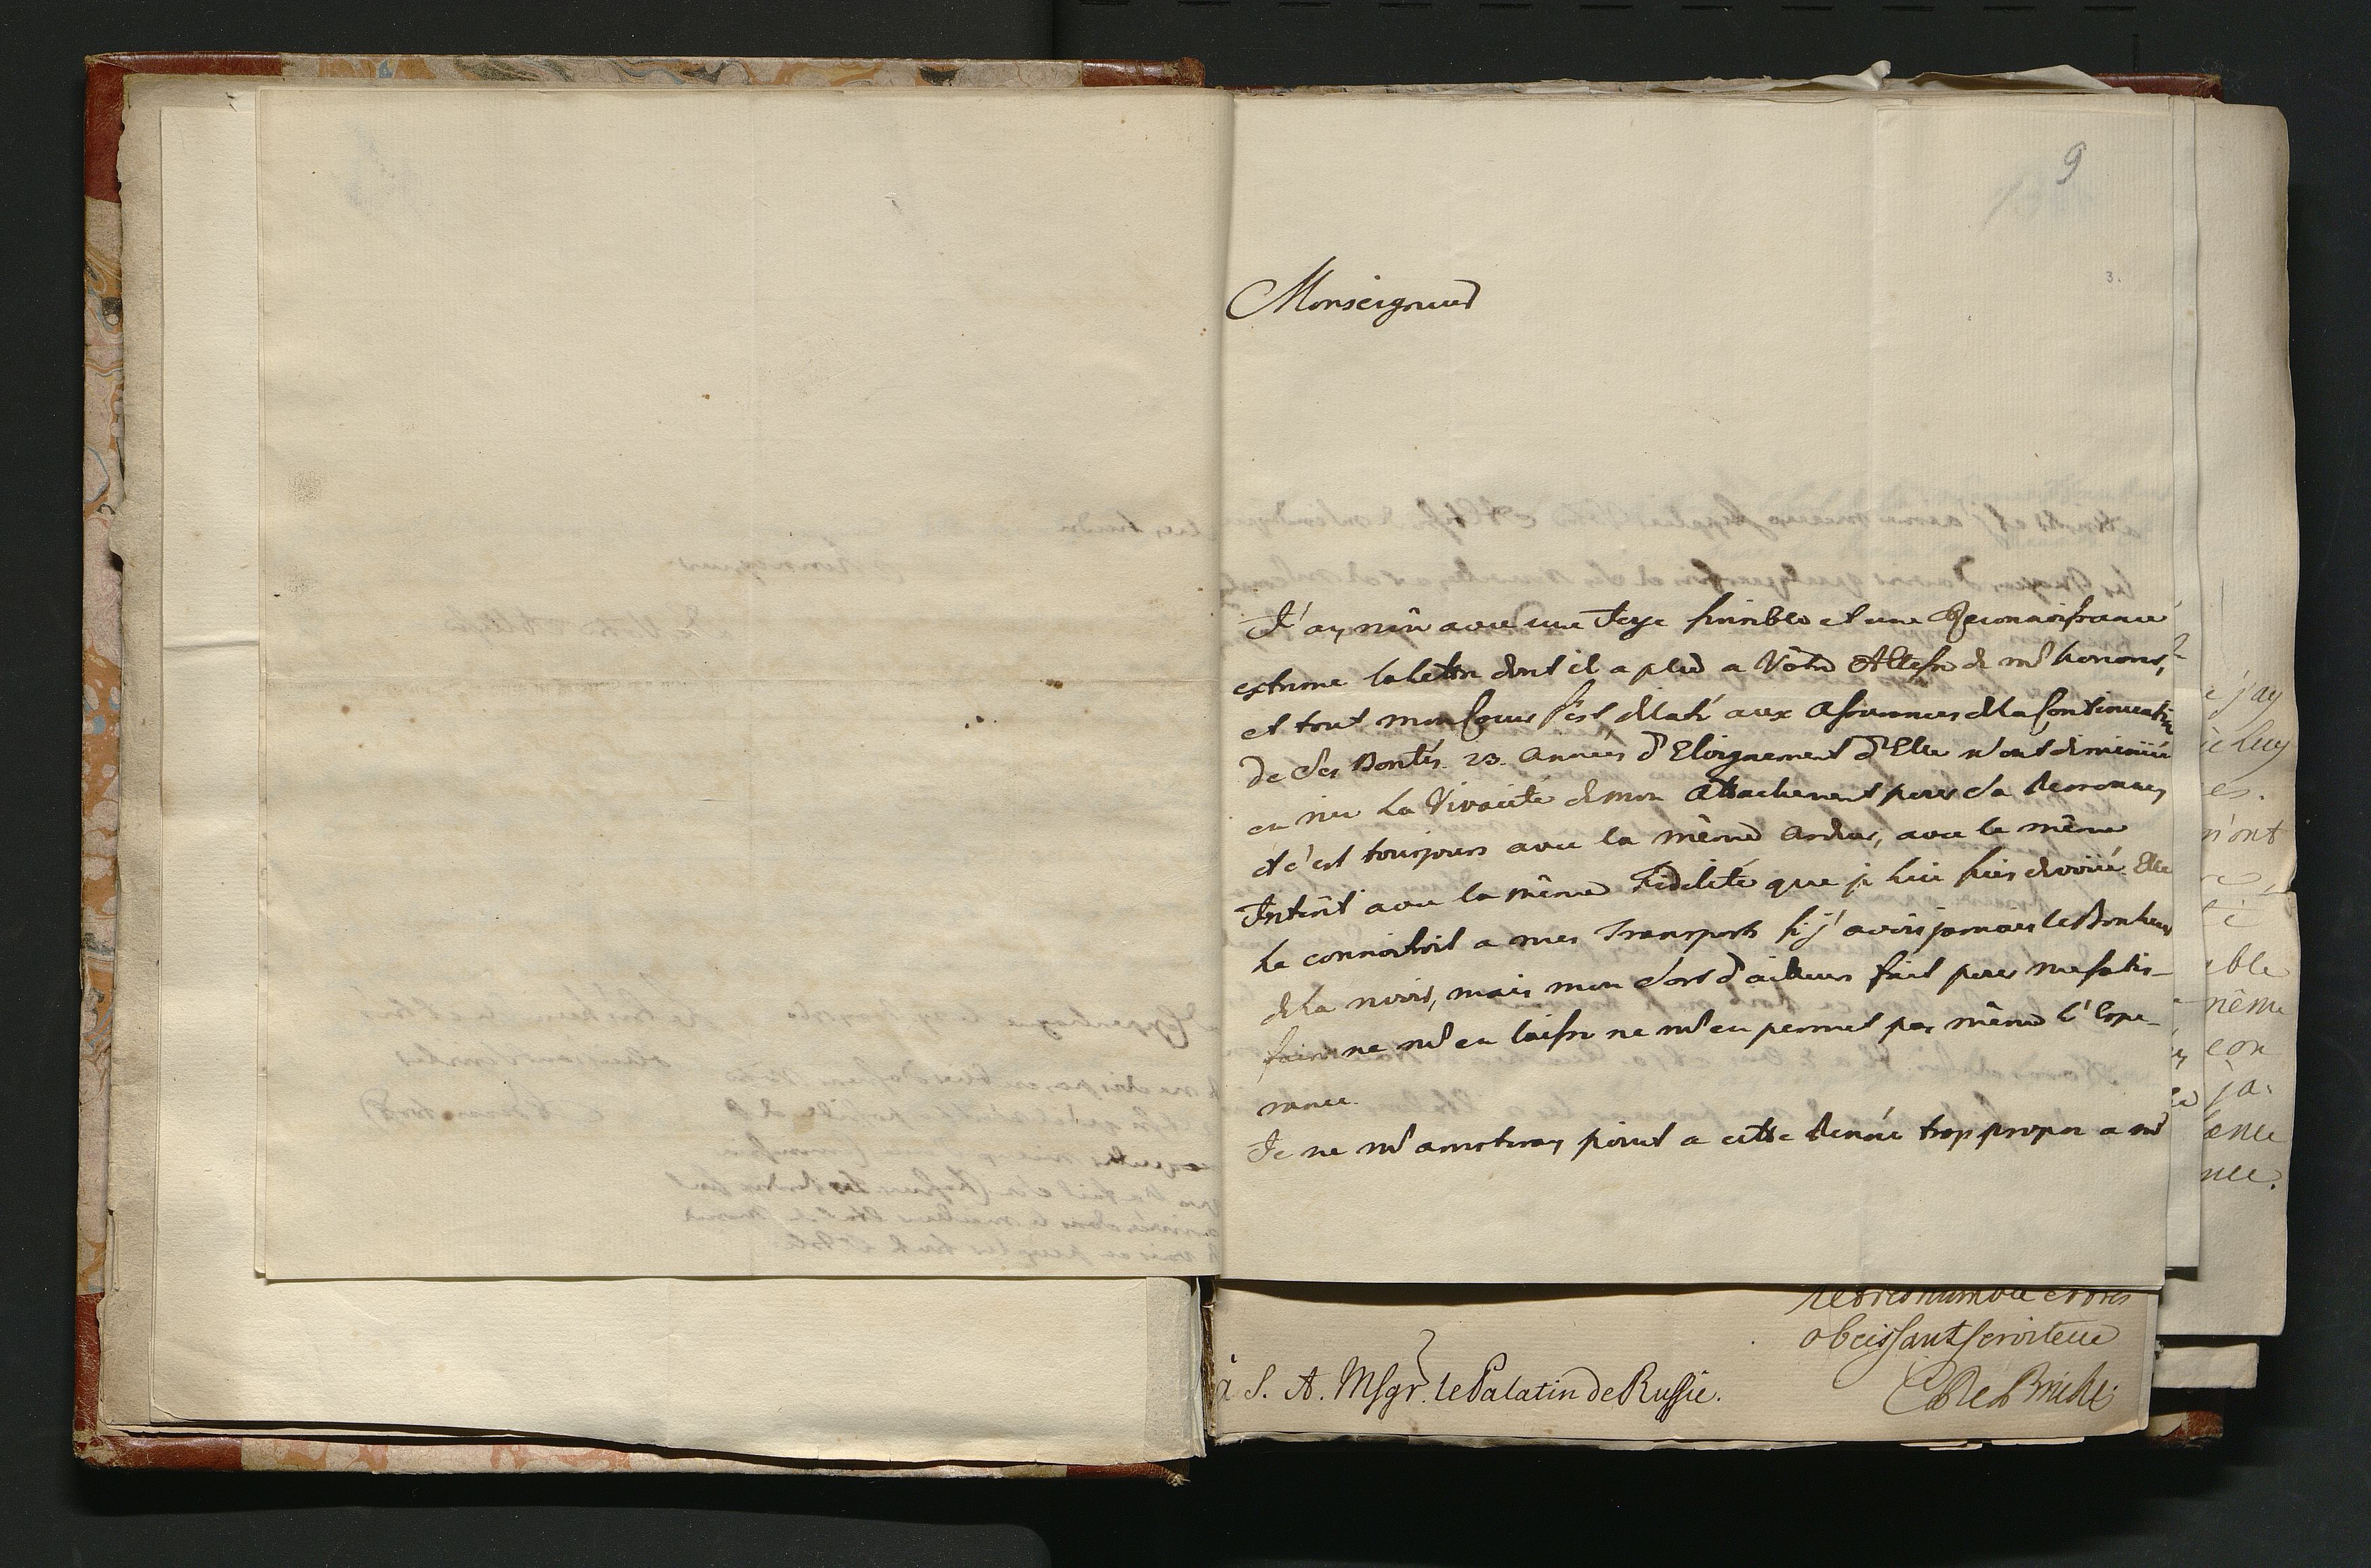 9
3.
Monseigneur
J'ay reçû avec une Joye sensible et une Reconnoissance
extreme la lettre dont il a plu a Vôtre Altesse de m'honorer,
et tout mon Coeur s'est dilaté aux assurances de la Continuation
de Ses Bontés. 23. années d'Eloignement d'Elle n'ont diminüé
en rien la Vivacité de mon Attachement pour Sa Personne,
et c'est toujours avec la même ardeur, avec le même
Intérêt avec la même Fidelité que je lui suis devoüé Elle
le connoitroit a mes Transports si j'avois jamais le Bonheur
de La revoir, mais mon Sort d'ailleurs fait pour me satis-
faire ne m'en laisse ne m'en permet pas même l'Espe-
rance.
Je ne m'arreteray point a cette Pensée trop propre a m'
tres humble et tres
obeissant serviteur
à S. A. Msgr. le Palatin de Russie.
j'ay
Luy
es.
n'ont
ble
même
con
ja-
ence
nce.